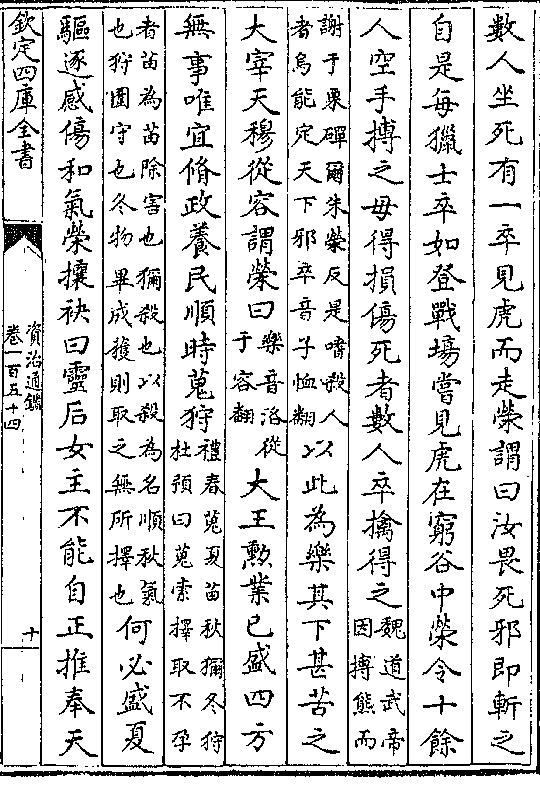 數人坐死有一卒見虎而走榮謂曰汝畏死邪即斬之
自是每獵士卒如登戰場嘗見虎在窮谷中榮令十餘
人空手搏之毋得損傷死者數人卒擒得之魏道武帝因搏熊而
謝于栗磾爾朱榮反是嗜殺人者烏能定天下邪卒音子恤翻以此為樂其下甚苦之
大宰天穆從容謂榮曰樂音洛從于容翻大王勲業已盛四方
無事唯宜脩政養民順時蒐狩禮春蒐夏苗秋獮冬狩杜預曰蒐索擇取不孕
者苗為苗除害也獮殺也以殺為名順秋氣也狩圍守也冬物畢成獲則取之無所擇也何必盛夏
驅逐感傷和氣榮攘袂曰靈后女主不能自正推奉天
欽定四庫全書
資治通鑑
卷一百五十四
十